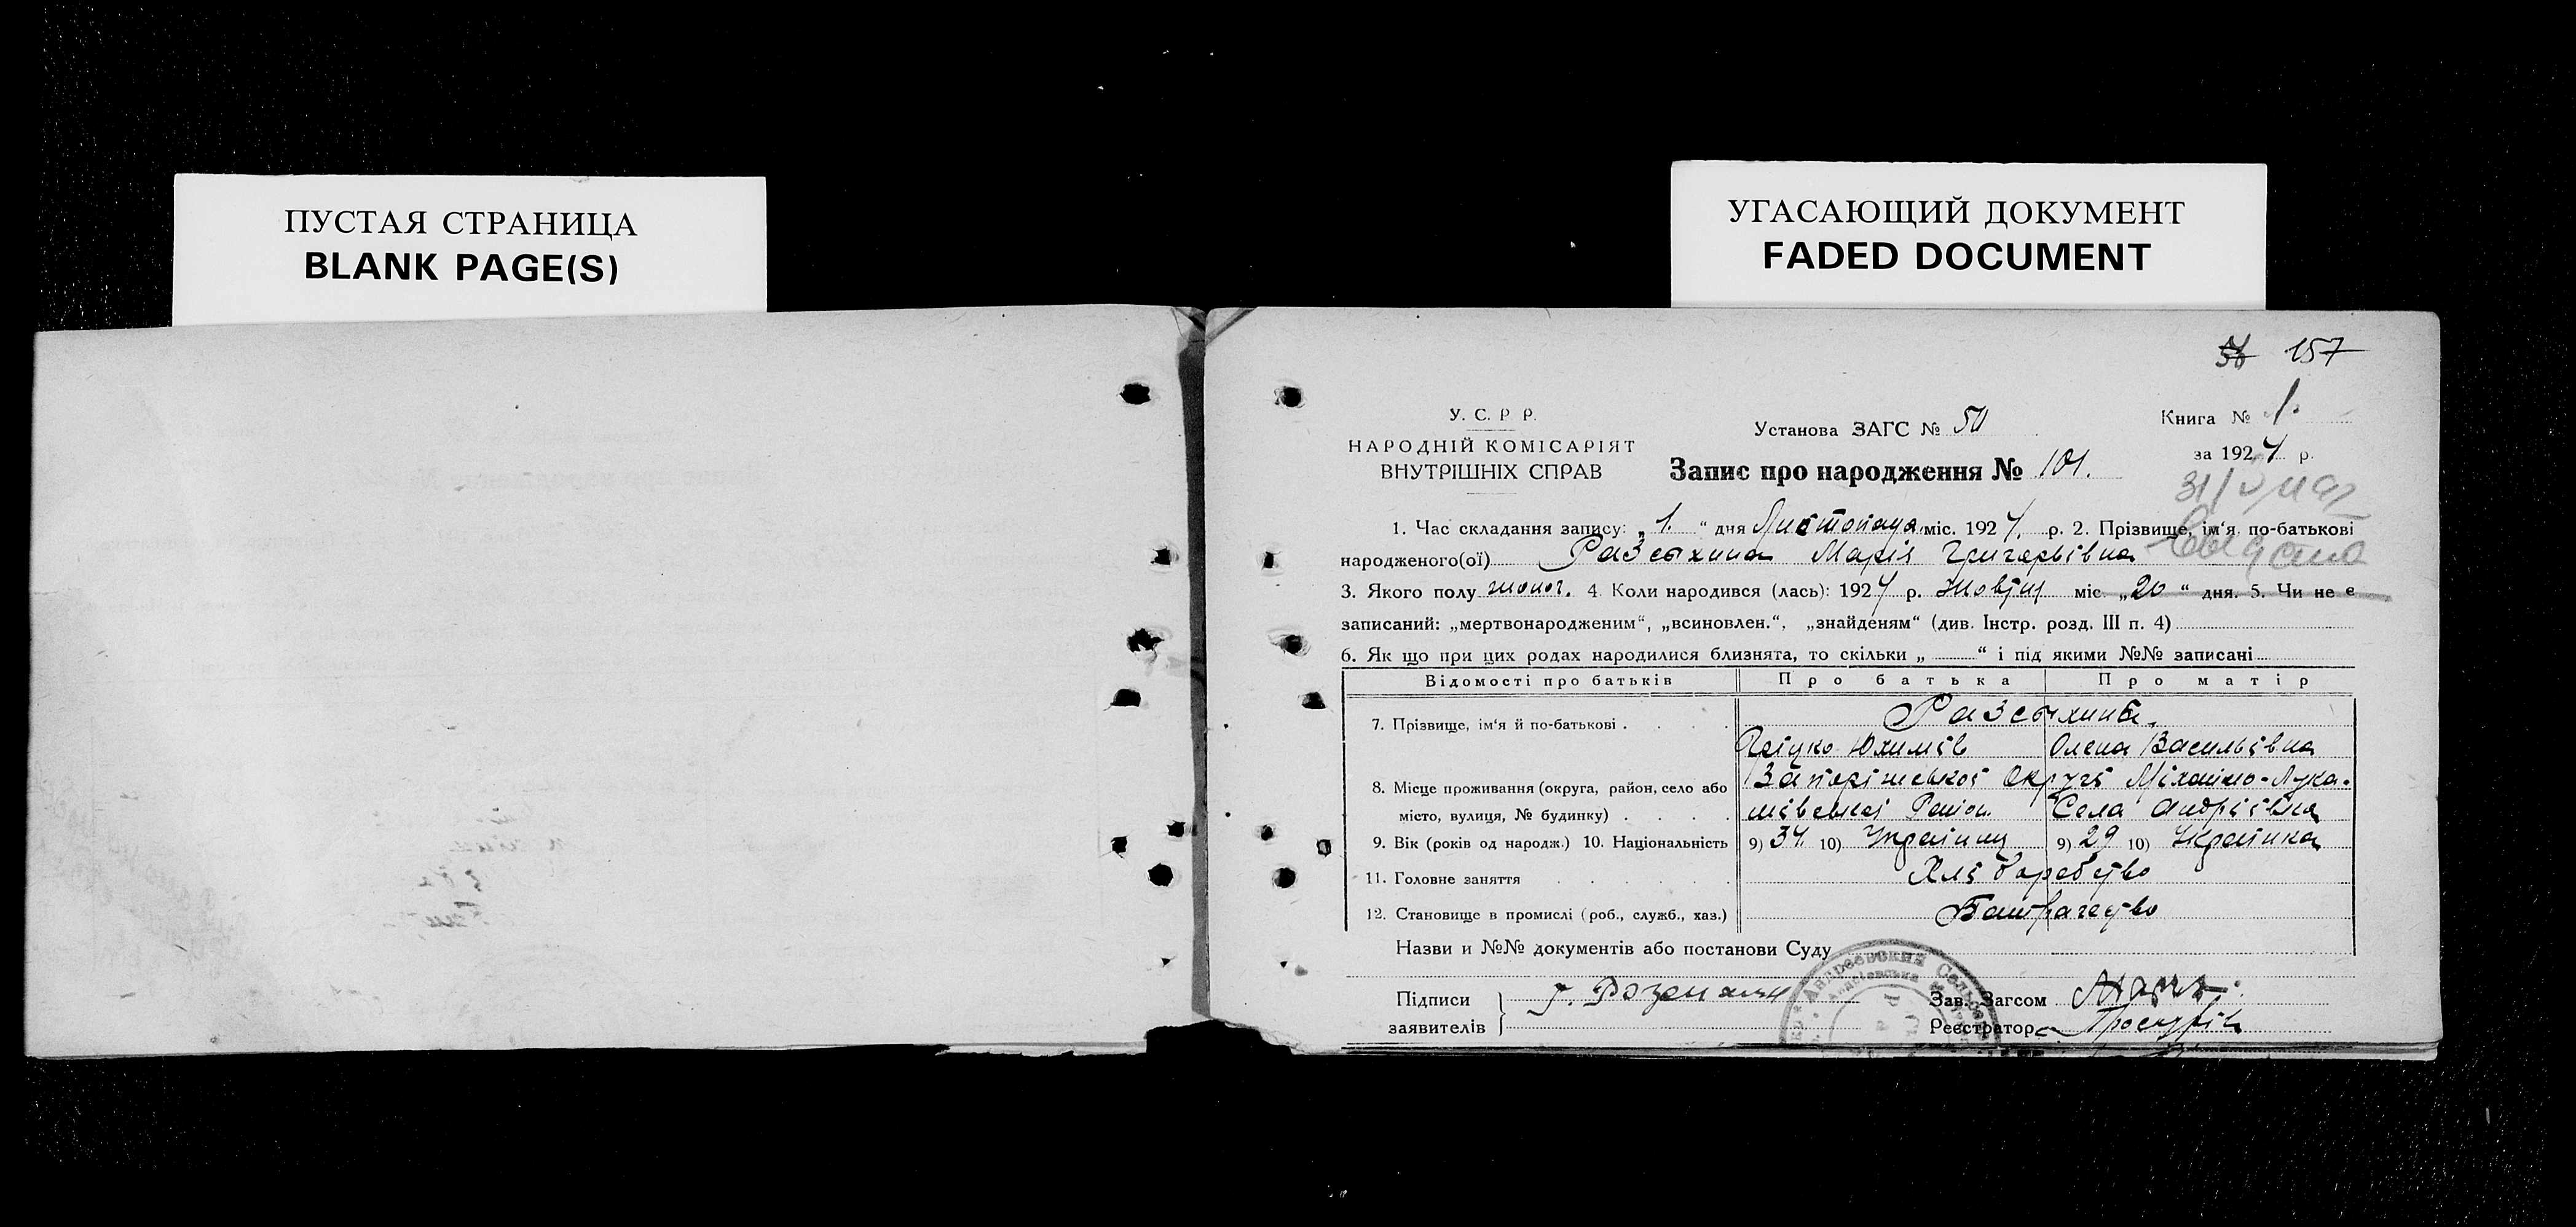 ПУСТАЯ СТРАНИЦА
BLANK PAGE(S)
УГАСАЮЩИЙ ДОКУМЕНТ
FADED DOCUMENT
157
У. С. Р Р.
НАРОДНІЙ КОМІСАРІЯТ
ВНУТРІШНІХ СПРАВ
Установа ЗАГС №
Запис про народження № 101.
Книга № 1.
за 1924 р.
1. Час складання запису: „ 1. “ дня Листопада міс. 1924. р. 2. Прізвище, ім‘я по-батькові
народженого(ої) Марія Григорьівна
3. Якого полу жіноч. 4. Коли народився (лась): 1924 р. Жовтн міс. „20“ дня. 5. Чи не є
записаний: „мертвонародженим“, „всиновлен.“, „знайденям“ (див. Інстр. розд. III п. 4)
6. Як що при цих родах народилися близнята, то скільки „ “ і під якими №№ записані
Відомості про батьків Про батька Про матір
7. Прізвище, ім‘я й по-батькові
Юхимів Олена Васильівна
8. Місце проживання (округа, район, село або Запоріжської Округі Міхайло-Лука-
місто, вулиця, № будинку) шівський Район Села Андріівка
9. Вік (років од народж.) 10. Національність 9) 34. 10) Украінец 9) 29 10) Украінка
11. Головне заняття Хліборобство
12. Становище в промислі (роб., служб., хаз.) Батрачество
Назви и №№ документів або постанови Суду
Підписи
заявителів
Зав. Загсом
Реєстратор